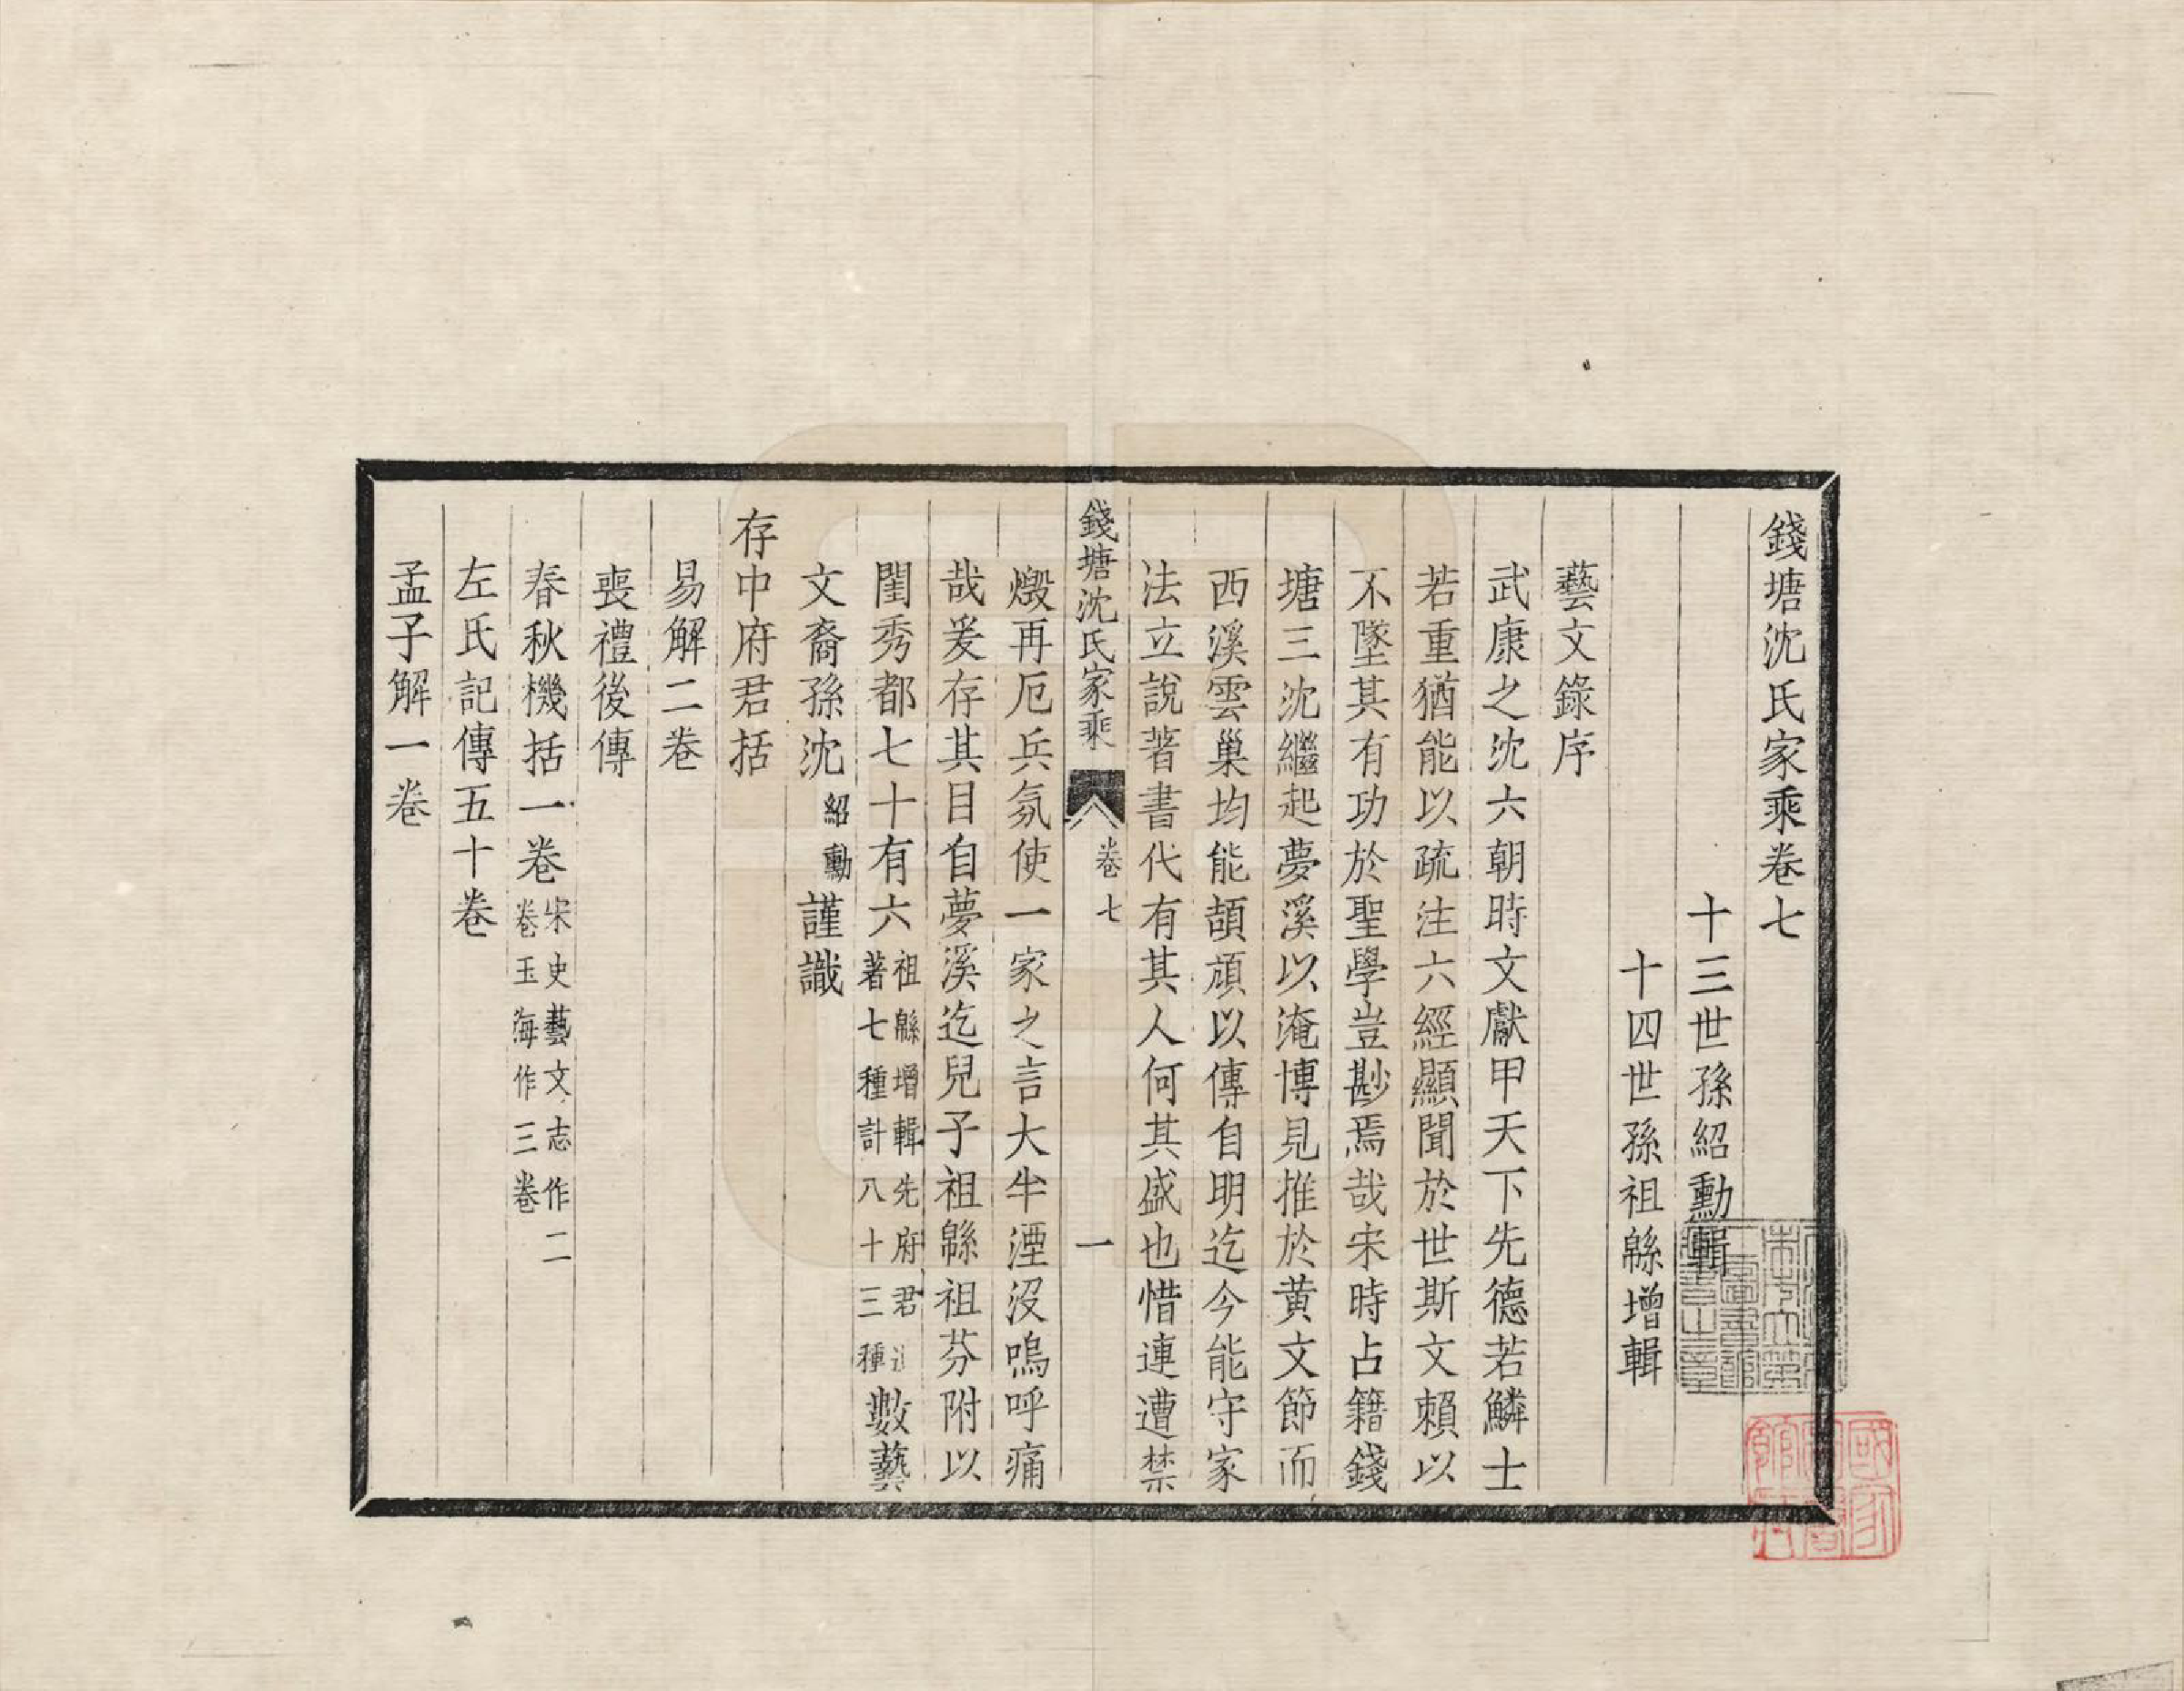 錢塘沈氏家乘卷七
十三世孫紹勳輯
十四世孫祖緜增輯
藝文錄序
武康之沈六朝時文獻甲天下先德若鱗士
若重猶能以疏注六經顯聞於世斯文賴以
不墜其有功於聖學豈尠焉哉宋時占籍錢
塘三沈繼起夢溪以淹博見推於黄文節而
西溪雲巢均能頡頏以傳自明迄今能守家
法立說著書代有其人何其盛也惜連遭禁
錢塘沈氏家乘
卷七
一
燬再厄兵氛使一家之言大半湮沒嗚呼痛
哉爰存其目自夢溪迄兒子祖緜祖芬附以
閨秀都七十有六祖緜增輯先府君
著七種計八十三種數藝
文裔孫沈紹勳謹識
存中府君括
易解二卷
喪禮後傳
春秋機括一卷宋史藝文志作二
卷玉海作三卷
左氏記傳五十卷
孟子解一卷
國家圖書館藏